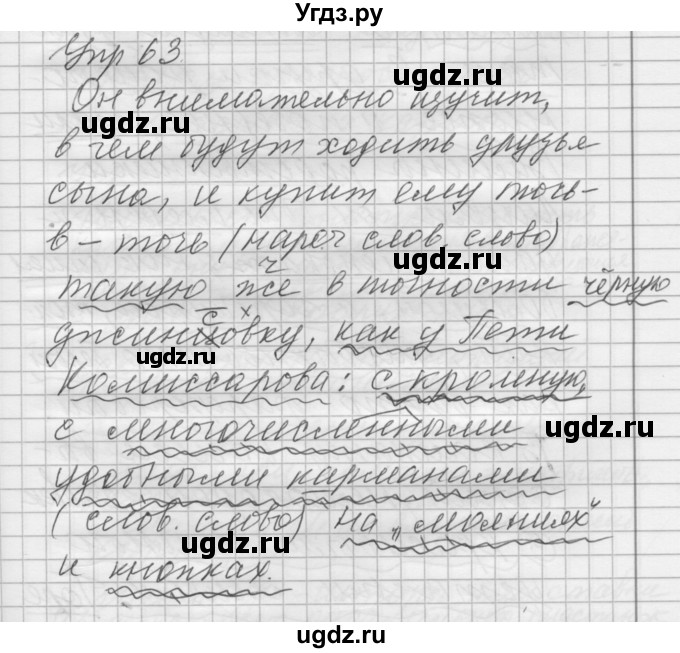 Угдз.ру
Упр 63.
ugdz.ru
Он внимательно изучит,
ugdz.ru
в чем будут ходить друзья
сына, и купит ему точь-
в-точь (нареч слов. слово)
ugdz.ru
ч
такую же в точности чёрную
с х
джинсовку, как у Пети
ugdz.ru
Комиссарова: скромную,
с многочисленными
ugdz.ru
удобными карманами
(слов. слово) на „молниях"
ugdz.ru
и кнопках.
ugdz.ru